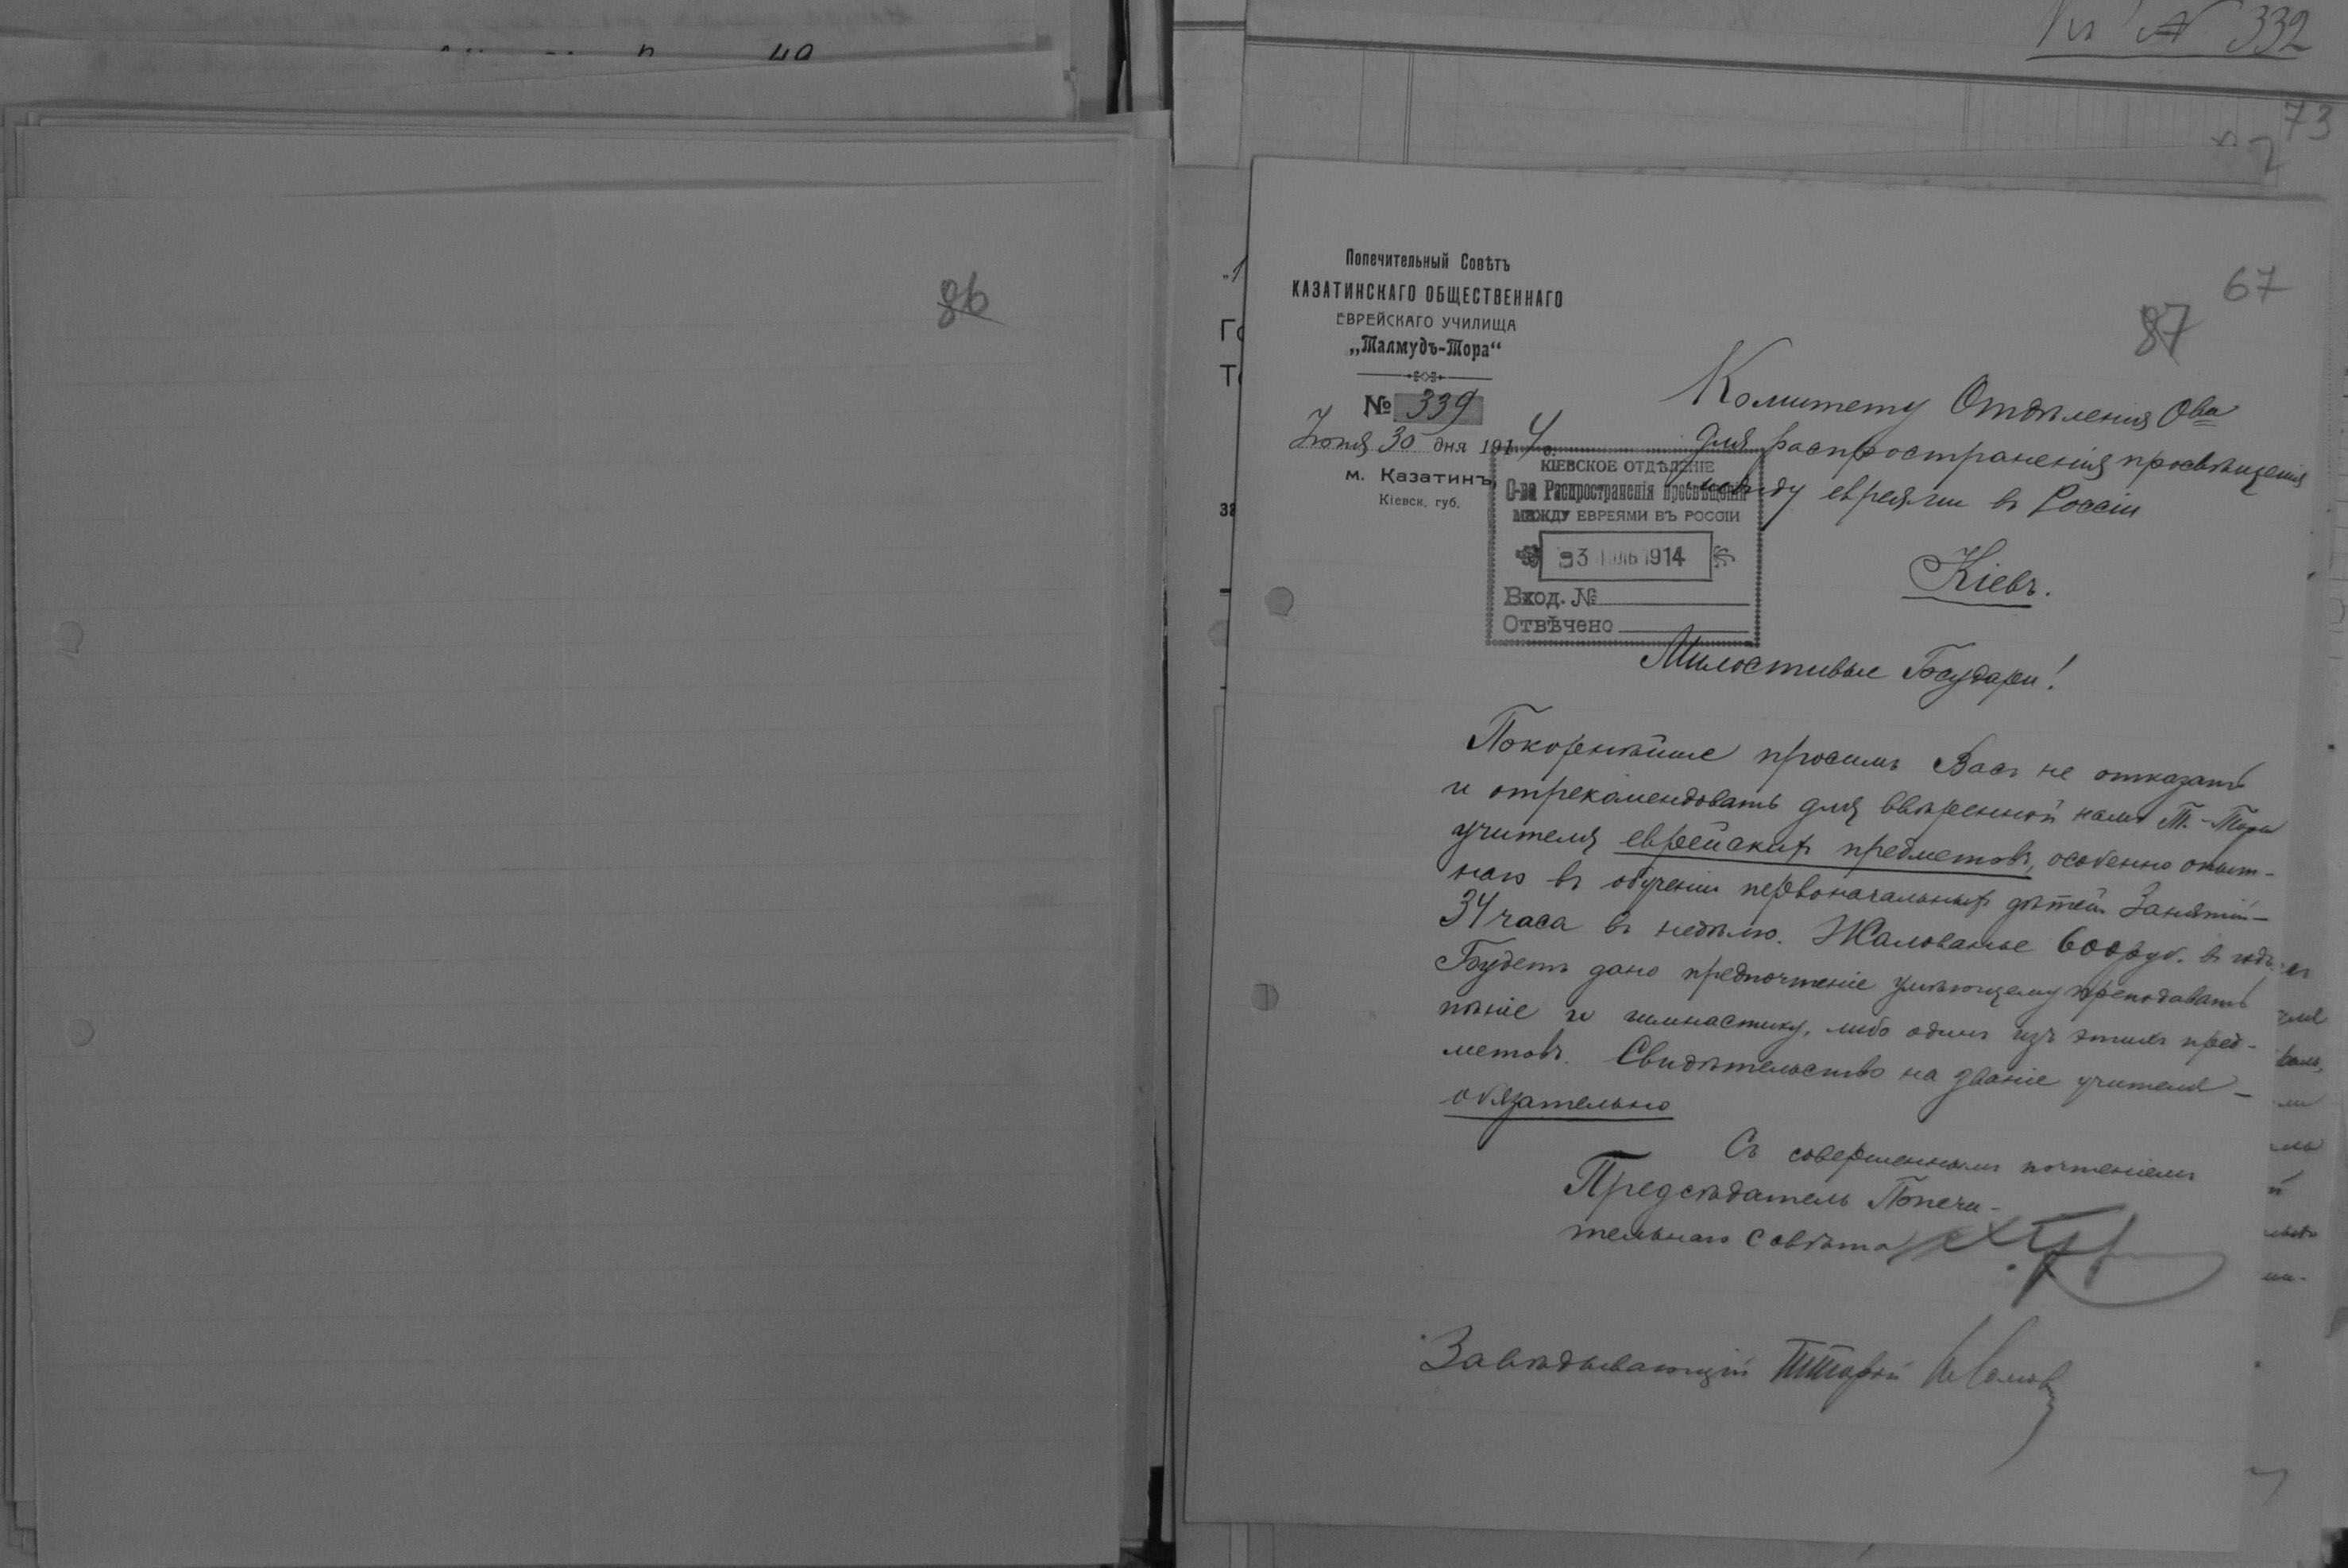 86
№ 332
73
2
67
87
Попечительный Совѣтъ
КАЗАТИНСКАГО ОБЩЕСТВЕННАГО
ЕВРЕЙСКАГО УЧИЛИЩА
„Талмудъ-Тора“
№ 339
30 дня 1914 г.
м. Казатинъ,
Кіевск. губ.
КІЕВСКОЕ ОТДѢЛЕНІЕ
О-ва Распространенія Просвѣщенія
МЕЖДУ ЕВРЕЯМИ ВЪ РОССІИ
1914
Вход. №
Отвѣчено
Комитету Отдѣленія О-ва
для распространенія просвѣщенія
между евреями въ Россіи
Кіевъ.
Милостивые Государи!
Покорнѣйше просимъ Васъ не отказать
и отрекомендовать для ввѣренной намъ Т.-Торы
учителя еврейскихъ предметовъ, особенно опыт-
наго въ обученіи первоначальныхъ дѣтей. Занятій –
34 часа въ недѣлю. Жалованье 600 руб. въ годъ.
Будетъ дано предпочтеніе умѣющему преподавать
пѣніе и гимнастику, либо одинъ изъ этихъ пред-
метовъ. Свидѣтельство на званіе учителя –
обязательно
Съ совершеннымъ почтеніемъ
Предсѣдатель Попечи-
тельнаго Совѣта
Завѣдывающій